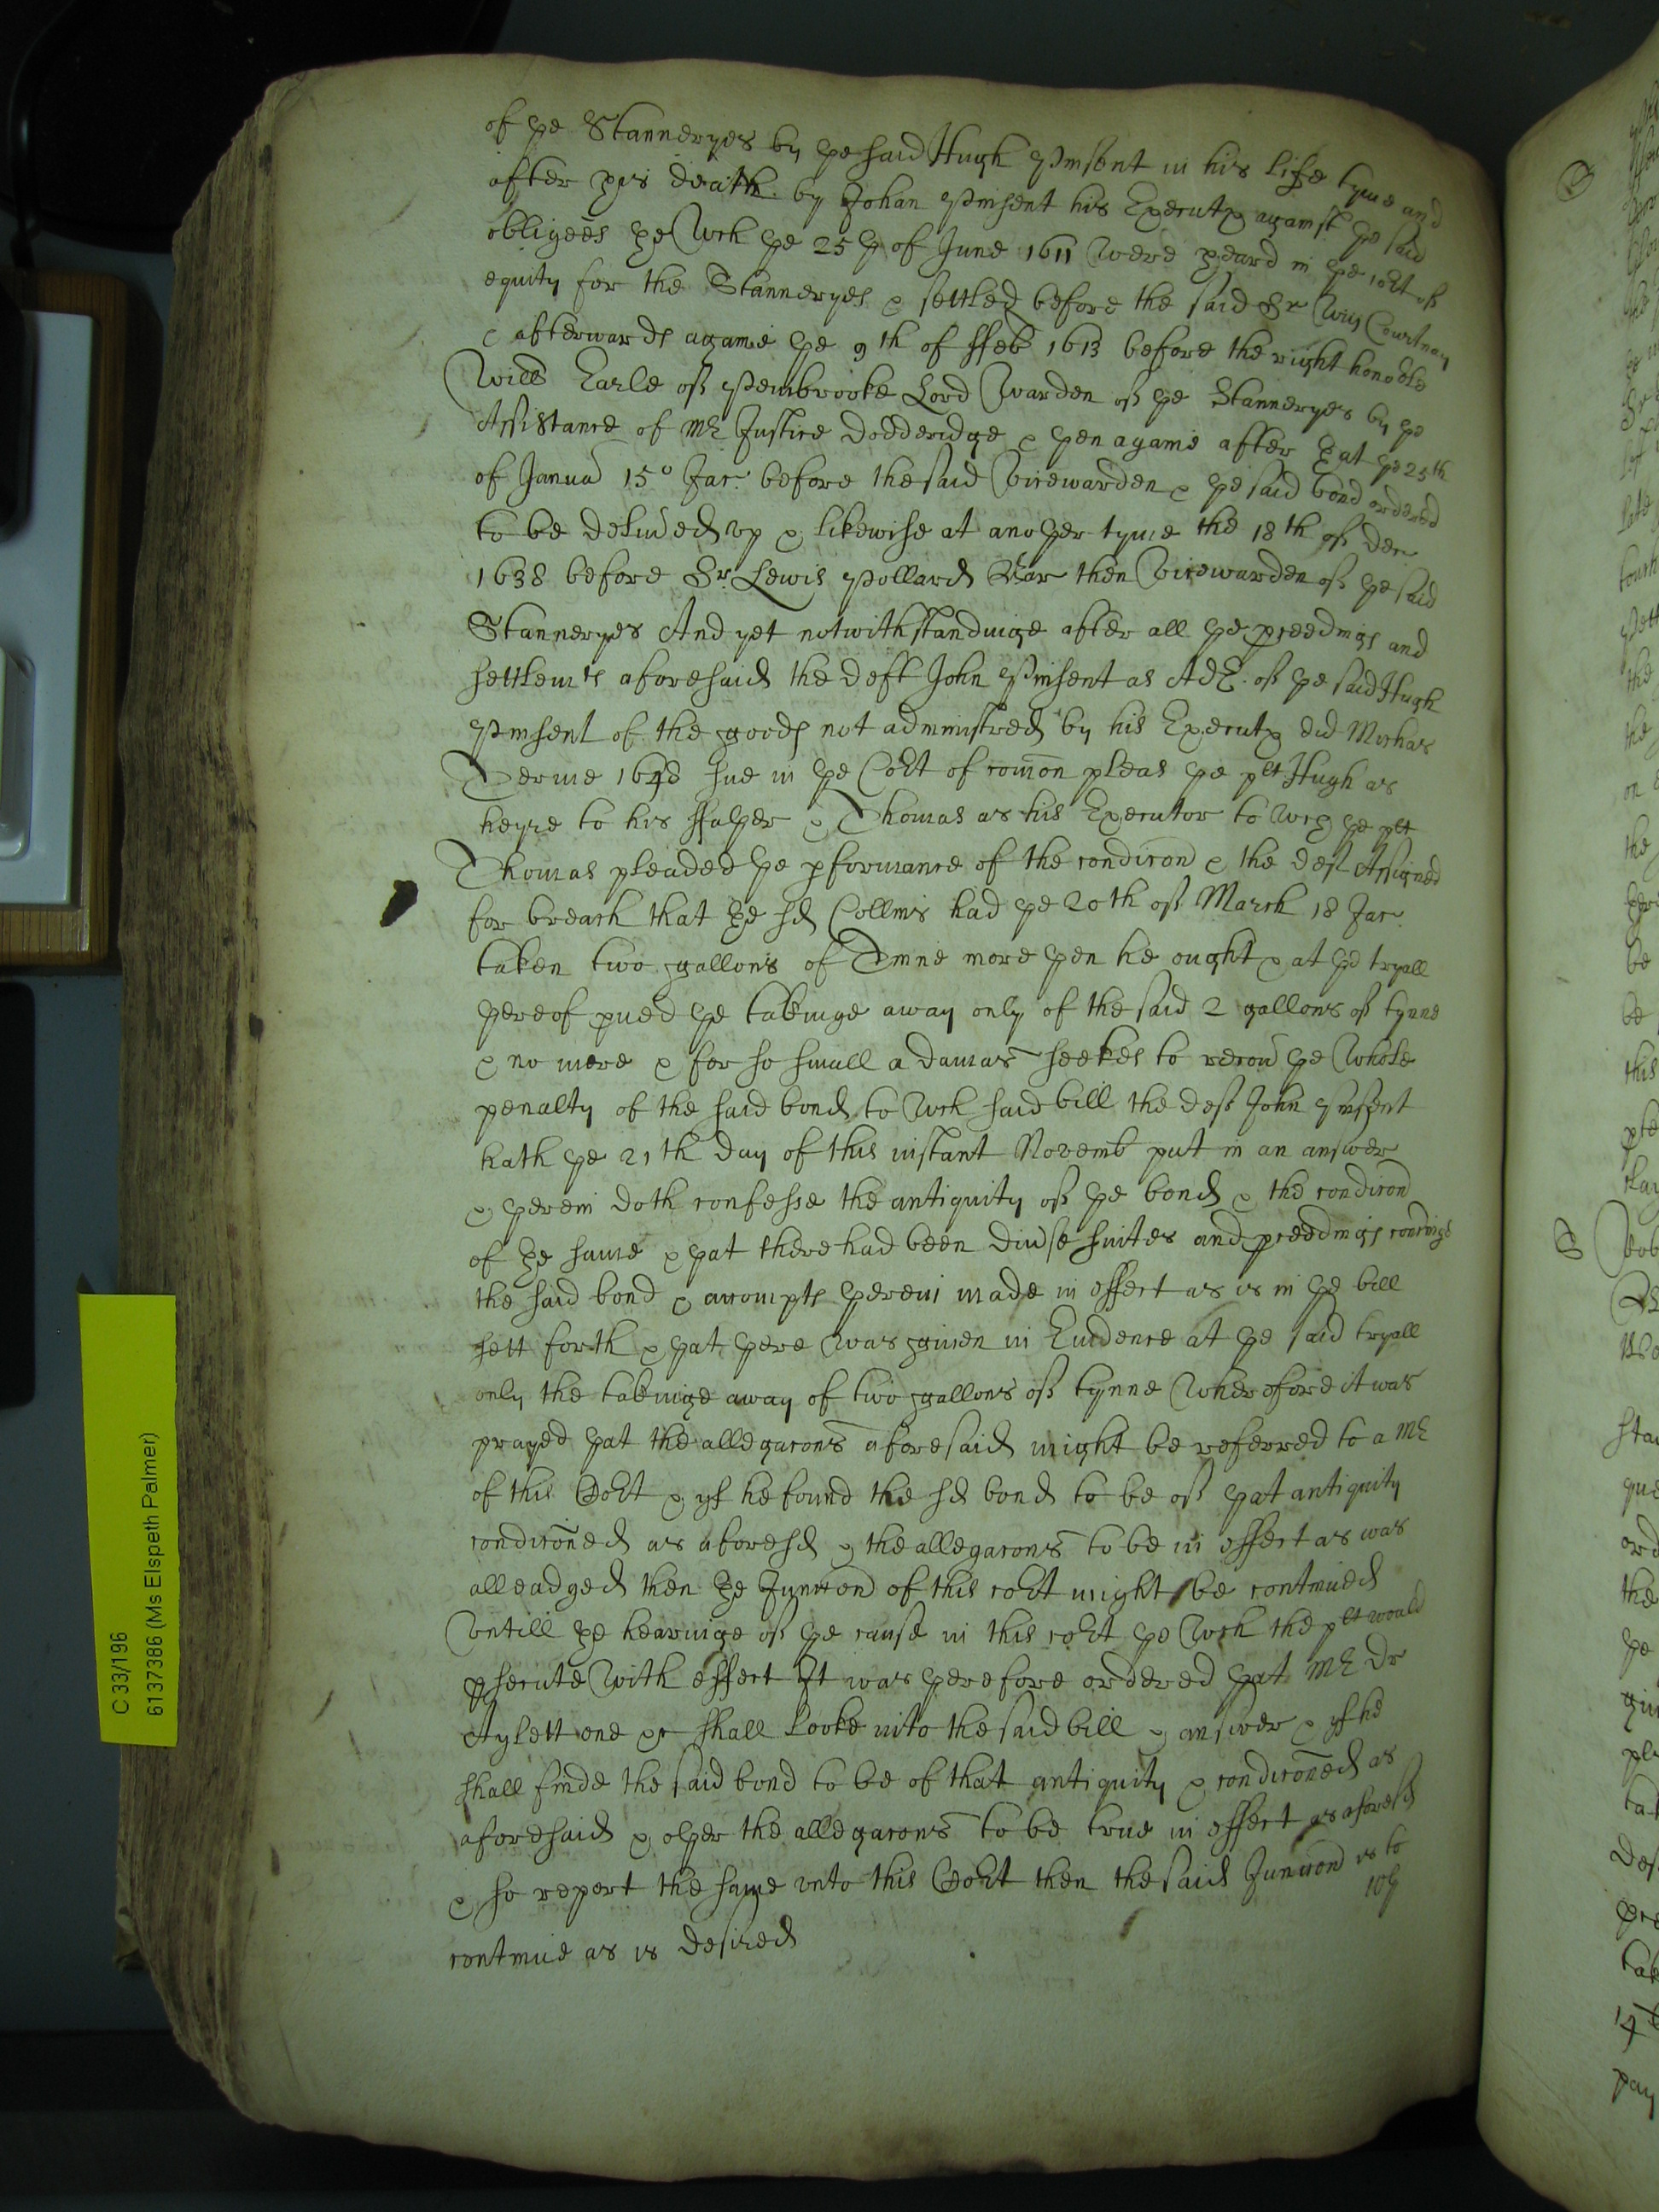 of the Stanneryes by the said Hugh Pinsent in his life tyme and
after his death by Johan Pinsent his Executx against the said
obligees the wch the 25th of June 1611 were heard in the Cort of
equity for the Stanneryes & settled before the said Sr Wm Courtnay
& afterwards againe the 9th of ffeb 1613 before the right honoble
Willm Earle of Pembrooke Lord Warden of the Stanneryes by the
Assistance of Mr Justice Dodderidge & then againe after that the 25th
of Januar 15o Jac. before the said Vicewarden & the said bond ordered
to be deliuered vp & likewise at another tyme the 18th of Dec
1638 before Sr Lewis Pollard Bar then Vicewarden of the said
Stanneryes And yet notwithstandinge after all the pceedings and
settlemts aforesaid the deft John Pinsent as Adr of the said Hugh
Pinsent of the goods not administred by his Executx did Michas
Terme 1648 sue in the Cort of comon pleas the plt Hugh as
heyre to his ffather & Thomas as his Executor to wch the plt
Thomas pleaded the pformance of the condicon & the deft Assigned
for breach that the sd Collins had the 20th of March 18 Jac.
taken two gallons of Tinne more then he ought & at the tryall
thereof pued the takinge away only of the said 2 gallons of tynne
& no more & for so small a damas seekes to recou the whole
penalty of the said bond to wch said bill the deft John Pinsent
hath the 21th day of this instant Novemb put in an answer
& therein doth confesse the antiquity of the bond & the condicon
of the same & that there had been diuse suites and pceedings concringe
the said bond & accompts therein made in effect as is in the bill
sett forth & that there was giuen in Euidence at the said tryall
only the takinge away of two gallons of tynne Wherefore it was
prayed that the allegacons aforesaid might be referred to a Mr
of this Cort & yf he found the sd bond to be of that antiquity
condiconed as aforesd & the allegacons to be in effect as was
alleadged then the Iniuncond of this cort might be continued
vntill the hearinge of the cause in this cort the wch the plt would
psecute with effect It was therefore ordered that Mr Dr
Aylett one &c shall looke into the said bill & answer & yf he
shall finde the said bond to be of that antiquity & condiconed as
aforesaid & other the allegacons to be true in effect as aforesd
& so report the same vnto this Cort then the said Iniuncond is to
continue as is desired
C 33/196
6137386 (Ms Elspeth Palmer)